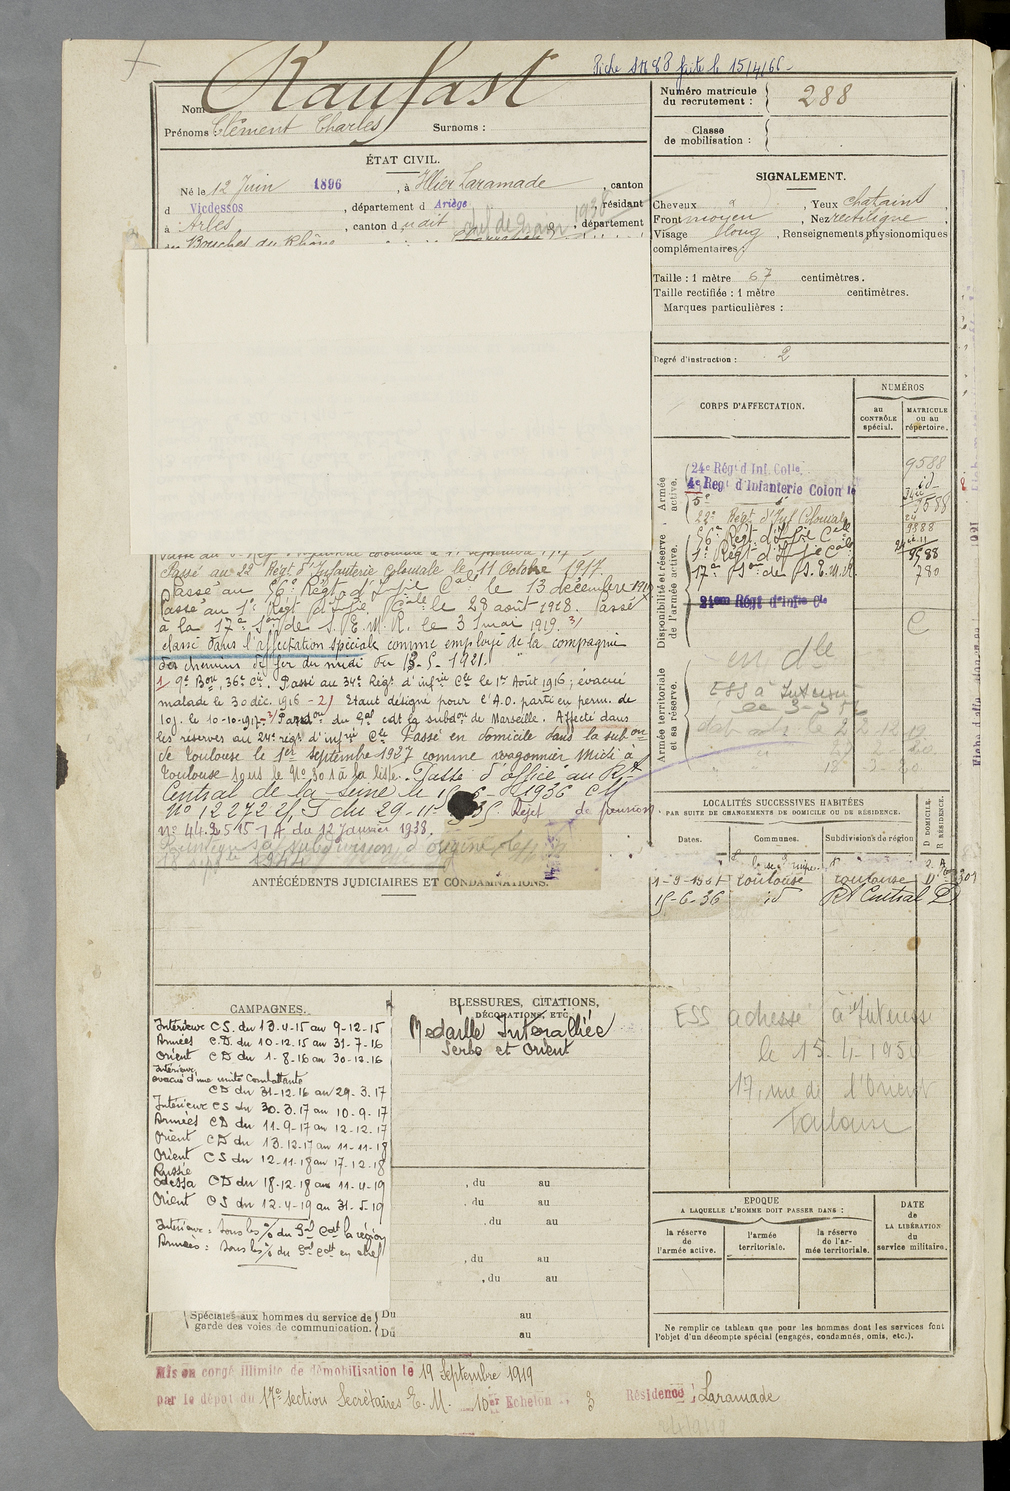 Fiche
faite le 15/4/66
Nom Raufast
Prénoms : Clément Charles Surnoms :
Numéro matricule
du recrutement : 288
Classe
de mobilisation :
ÉTAT CIVIL.
Né le 12 Juin 1896, à Illier Laramade, canton
d Vicdessos, département d Ariège, résidant
à Arles, canton d udit, département
Bouches du Rhône
SIGNALEMENT.
Cheveux, Yeux chatains
Front moyen, Nez rectiligne
Visage long, Renseignements physionomiques
complémentaires :
Taille : 1 mètre 67 centimètres.
Taille rectifiée : 1 mètre centimètres.
Marques particulières :
Degré d'instruction : 2
CORPS D'AFFECTATION.
NUMÉROS
au
CONTRÔLE
spécial.
MATRICULE
ou au
répertoire.
Armée
active.
24e Régt d'Inf. Colle 9588
4e Regt d'Infanterie Colon le id
5e
22e Régt d'Inf Coloniale
Disponibilité et réserve
de l'armée active.
56e Régt d'Inf ie Cale
1er Régt d'Inf ie Cale 9588
17e Son de S.E.M.R. 780
24em Régt d'Infie Cle
Armée territoriale
et sa réserve.
Passé au 22 Régt d'Infanterie Coloniale le 11 Octobre 1917.
Passé au 56e Régt d'Infie Cale le 13 décembre 1917
Passé au 1er Régt d'Infie Cale le 28 août 1918. Passé
à la 17e Son de S.E.M.R. le 3 mai 1919. 3/
classé dans l'affectation spéciale comme employé de la compagnie
des chemins de fer du midi du 13-5-1921.
1/ 9e Bon, 36e Cie. Passé au 34e Régt d'infie Cle le 1er Août 1916; évacué
malade le 30 déc. 1916 - 2/ Etant désigné pour l'A.O. parti en perm. de
10j. le 10-10-917- 3/ Par don du Gal cdt la subdon de Marseille. Affecté dans
les réserves au 24e régt d'infie Cle Passé en domicile dans la subon
de Toulouse le 1er septembre 1927 comme wagonnier Midi à
Toulouse sous le No 301 à la liste. Passé d'office au Rt
Central de la Seine le 15-6-1936 CM
No 12272 2/ J du 29-11-35. Rejet de pension
no 44.2515-1 A du 12 Janvier 1938.
subdivision d'origine
18 sept 1944
ANTÉCÉDENTS JUDICIAIRES ET CONDAMNATIONS.
LOCALITÉS SUCCESSIVES HABITÉES
PAR SUITE DE CHANGEMENTS DE DOMICILE OU DE RÉSIDENCE.
Dates. Communes. Subdivisions de région D DOMICILE. R RÉSIDENCE.
Toulouse Toulouse D
15-6-36 id Rt Central D
ESS adressé à l'intéressé
le 15-4-1950
17, rue de l'Orient
Toulouse
CAMPAGNES.
Intérieur CS. du 13-4-15 au 9-12-15
Armées C.D. du 10-12-15 au 31-7-16
Orient CD du 1-8-16 au 30-12-16
Intérieur,
évacué d'une unité Combattante
CD du 31-12-16 au 29-3-17
Intérieur CS du 30-3-17 au 10-9-17
Armées CD du 11-9-17 au 12-12-17
Orient CD du 13-12-17 au 11-11-18
Orient CS du 12-11-18 au 17-12-18
Russie
Odessa CD du 18-12-18 au 11-4-19
Orient CS du 12-4-19 au 31-5-19
Intérieur : sous les % du Gal Cdt la région
Armées : sous les % du Gal Cdt en chef
BLESSURES, CITATIONS,
DÉCORATIONS, ETC.
Médaille Interalliée
Serbe et Orient
, du au
, du au
, du au
, du au
, du au
Spéciales aux hommes du service de garde des voies de communication. Du au
Du au
EPOQUE
A LAQUELLE L'HOMME DOIT PASSER DANS :
la réserve
de l'armée active.
l'armée
territoriale.
la réserve
de l'ar-
mée territoriale.
DATE
de
LA LIBÉRATION
du
service militaire.
Ne remplir ce tableau que pour les hommes dont les services font
l'objet d'un décompte spécial (engagés, condamnés, omis, etc.).
Mis en congé illimité de démobilisation le 19 Septembre 1919
par le dépôt du 17e section Secrétaires E. M. 10er Echelon : 3 Résidence : Laramade